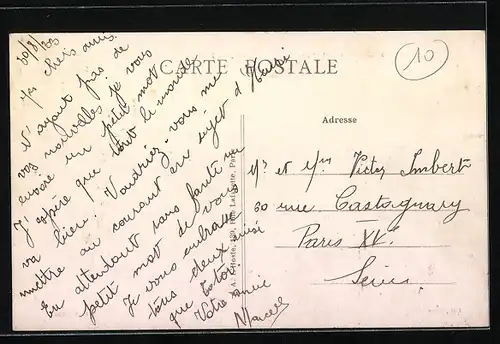 30/8/23
Mes chers amis.
et ayant pas de
vos nouvelles je vous
envoie un petit mot
J'espère que tout le monde
va bien. Voudriez-vous me
mettre au courant au sujet d'Henri
En attendant sans faute un
petit mot de vous
Je vous embrasse
tous deux ainsi
que Totor.
Votre amie
Marcelle
CARTE POSTALE
10
Adresse
Mr et Mme Victor Imbert
30 rue Castagnary
Paris XVe
Seine